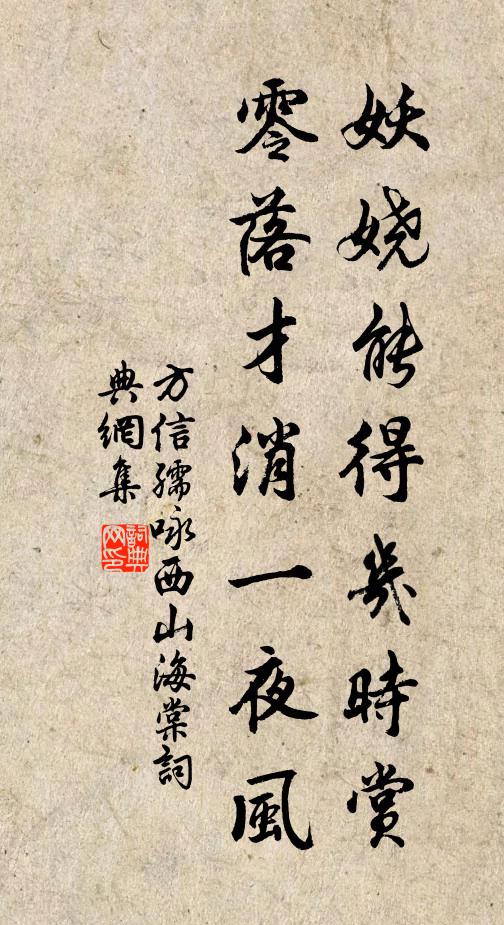 妖嬈能得幾時賞
零落才消一夜風
方信孺咏西山海棠詞
典網集
詞典
网印